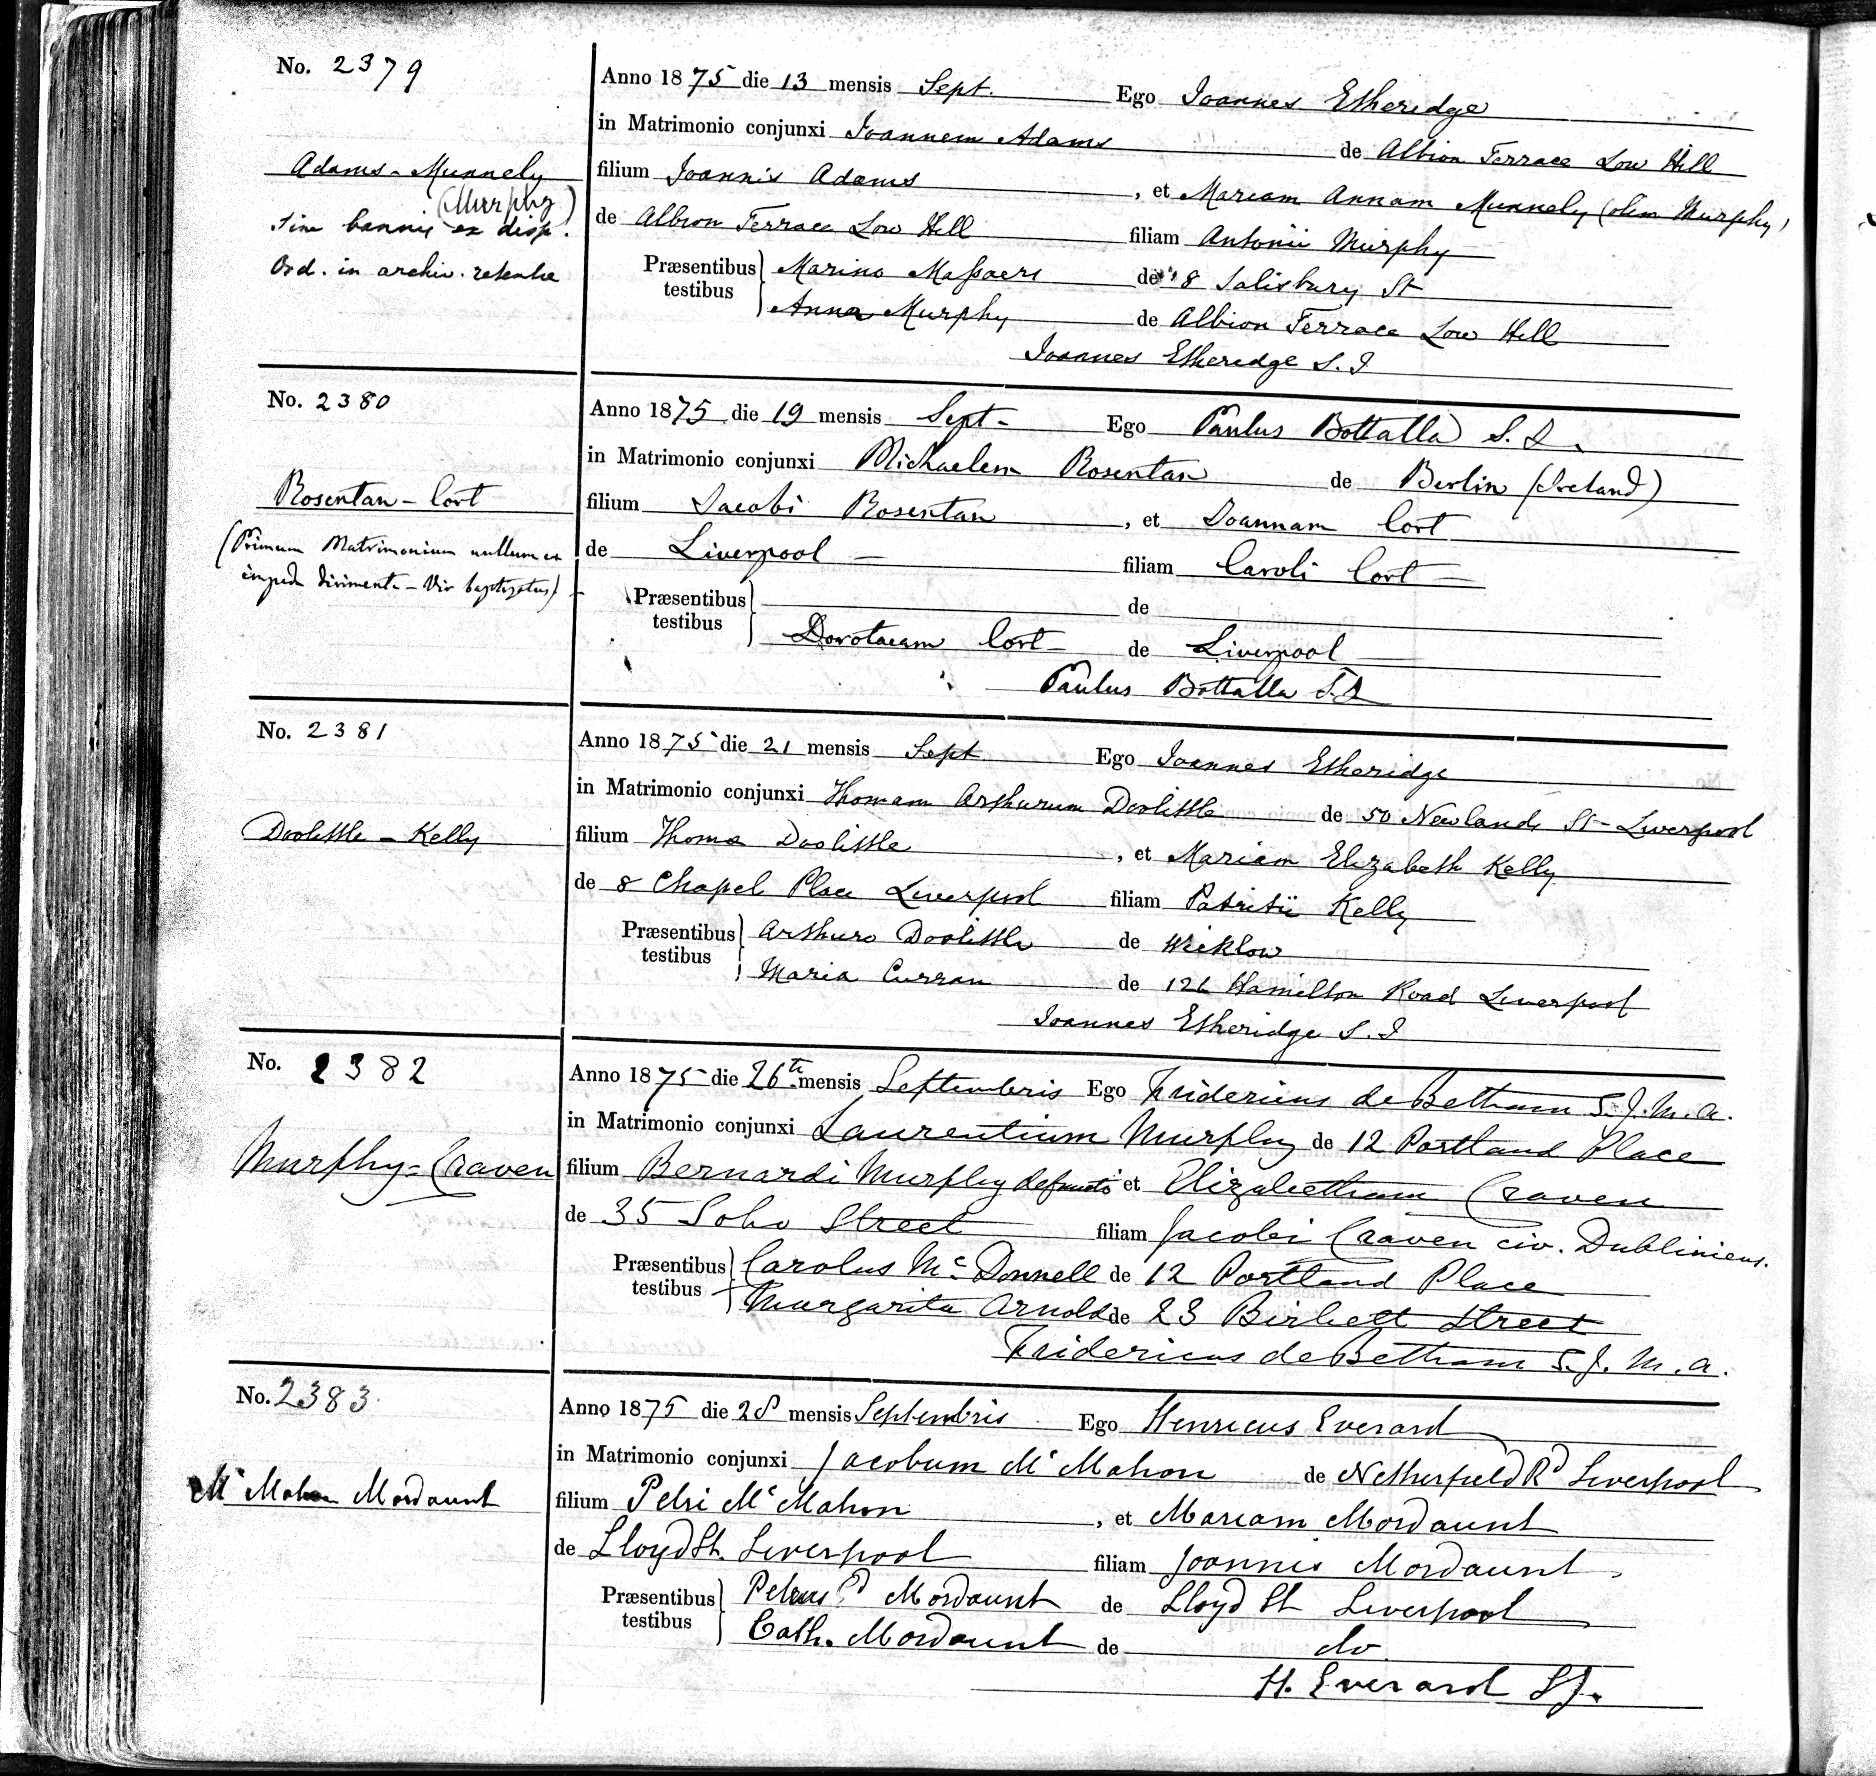 No. 2379
Anno 1875 die 13 mensis Sept. Ego Joannes Etheridge
in Matrimonio conjunxi Joannem Adams de Albion Terrace Low Hill
Adams - Munnely
(Murphy)
sine bannis ex disp.
Ord. in archiv. retentæ
filium Joannis Adams , et Mariam Annam Munnely (olim Murphy)
de Albion Terrace Low Hill filiam Antonii Murphy
Præsentibus testibus Marino de 8 Salisbury St
Anna Murphy de Albion Terrace Low Hill
Joannes Etheridge S.J
No. 2380
Anno 1875 die 19 mensis Sept- Ego Paulus Bottalla S.J.
in Matrimonio conjunxi Michaelem Rosentan de Berlin (Ireland)
Rosentan - Cort
(Primum Matrimonium nullum ex
imped. dirimente - Vir baptizatus)
filium Jacobi Rosentan , et Joannam Cort
de Liverpool - filiam Caroli Cort -
Præsentibus testibus de
Dorotaeam Cort - de Liverpool
Paulus Bottalla S.J
No. 2381
Anno 1875 die 21 mensis Sept Ego Joannes Etheridge
in Matrimonio conjunxi Thomam Arthurum Doolittle de 50 Newlands St - Liverpool
Doolittle - Kelly
filium Thomæ Doolittle , et Mariam Elizabeth Kelly
de 8 Chapel Place Liverpool filiam Patritii Kelly
Præsentibus testibus Arthuro Doolittle de Wicklow
Maria Curran de 126 Hamilton Road Liverpool
Joannes Etheridge S.J
No. 2382
Anno 1875 die 26th mensis Septembris Ego Fridericus de Betham S.J.M.A.
in Matrimonio conjunxi Laurentium Murphy de 12 Portland Place
Murphy = Craven
filium Bernardi Murphy defuncti et Elizabetham Craven
de 35 Soho Street filiam Jacobi Craven civ. Dubliniens.
Præsentibus testibus Carolus McDonnell de 12 Portland Place
Margarita Arnold de 23 Birkett Street
Fridericus de Betham S.J.M.A.
No. 2383
Anno 1875 die 28 mensis Septembris Ego Henricus Everard
in Matrimonio conjunxi Jacobum McMahon de Netherfield Rd Liverpool
McMahon Mordaunt
filium Petri McMahon , et Mariam Mordaunt
de Lloyd St. Liverpool filiam Joannis Mordaunt
Præsentibus testibus Petrus Mordaunt de Lloyd St Liverpool
Cath. Mordaunt de do
H. Everard SJ.